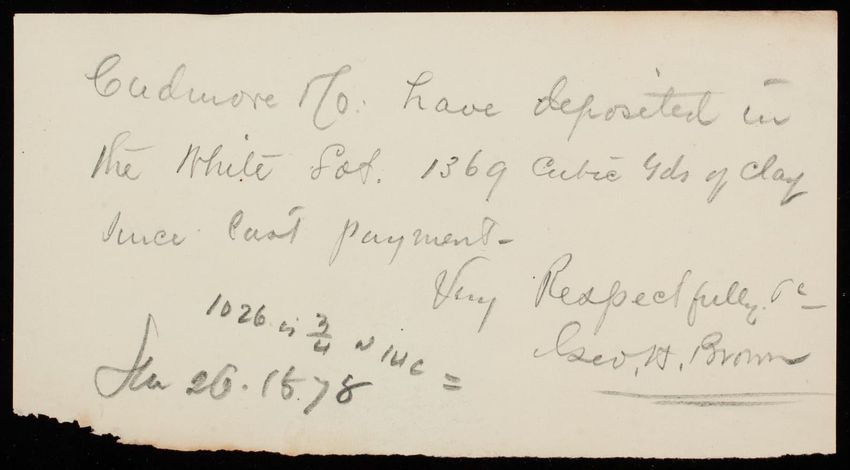 Cudmore & Co. have deposited in
the White Lot. 1369 Cubic Yds of Clay
since last payment-
Very Respectfully. &c
Geo. H. Brown
1026 is 3/4
Jan 26. 1878